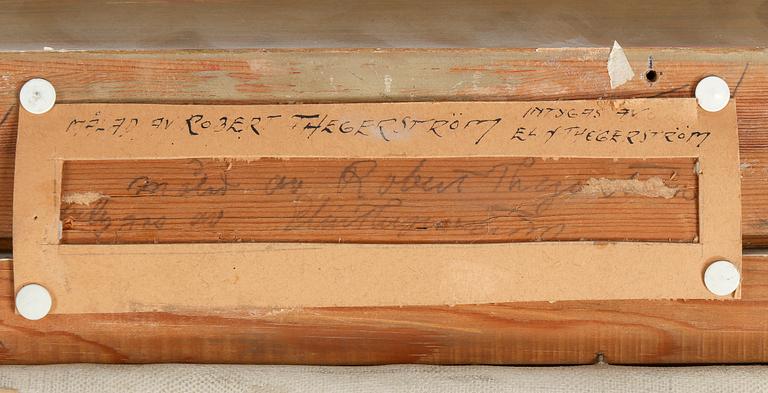 MÅLAD AV ROBERT THEGERSTRÖM
INTYGAS AV
ELIN THEGERSTRÖM
målad av Robert Thegerström
av